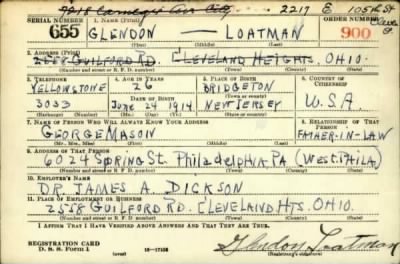 7218 Carnegie Ave City 2217 E 105th St
SERIAL NUMBER 1. NAME (Print) ORDER NUMBER
655 GLENDON — LOATMAN 900
(First) (Middle) (Last)
2. ADDRESS (Print)
2558 GUILFORD RD. CLEVELAND HEIGHTS, OHIO.
(Number and street or R. F. D. number) (Town) (County) (State)
3. TELEPHONE 4. AGE IN YEARS 5. PLACE OF BIRTH 6. COUNTRY OF CITIZENSHIP
YELLOWSTONE 26 BRIDGETON
DATE OF BIRTH
3033 JUNE 24 1914 NEW JERSEY U.S.A.
(Exchange) (Number) (Mo.) (Day) (Yr.) (State or country)
7. NAME OF PERSON WHO WILL ALWAYS KNOW YOUR ADDRESS 8. RELATIONSHIP OF THAT PERSON
GEORGE MASON FATHER-IN-LAW
(Mr., Mrs., Miss) (First) (Middle) (Last)
9. ADDRESS OF THAT PERSON
6024 SPRING ST. PHILADELPHIA PA (WEST PHILA.)
(Number and street or R. F. D. number) (Town) (County) (State)
10. EMPLOYER'S NAME
DR. JAMES A. DICKSON
11. PLACE OF EMPLOYMENT OR BUSINESS
2558 GUILFORD RD. CLEVELAND HTS. OHIO.
(Number and street or R. F. D. number) (Town) (County) (State)
I AFFIRM THAT I HAVE VERIFIED ABOVE ANSWERS AND THAT THEY ARE TRUE.
REGISTRATION CARD
D. S. S. Form 1 (over) Glendon Loatman
(Registrant's signature)